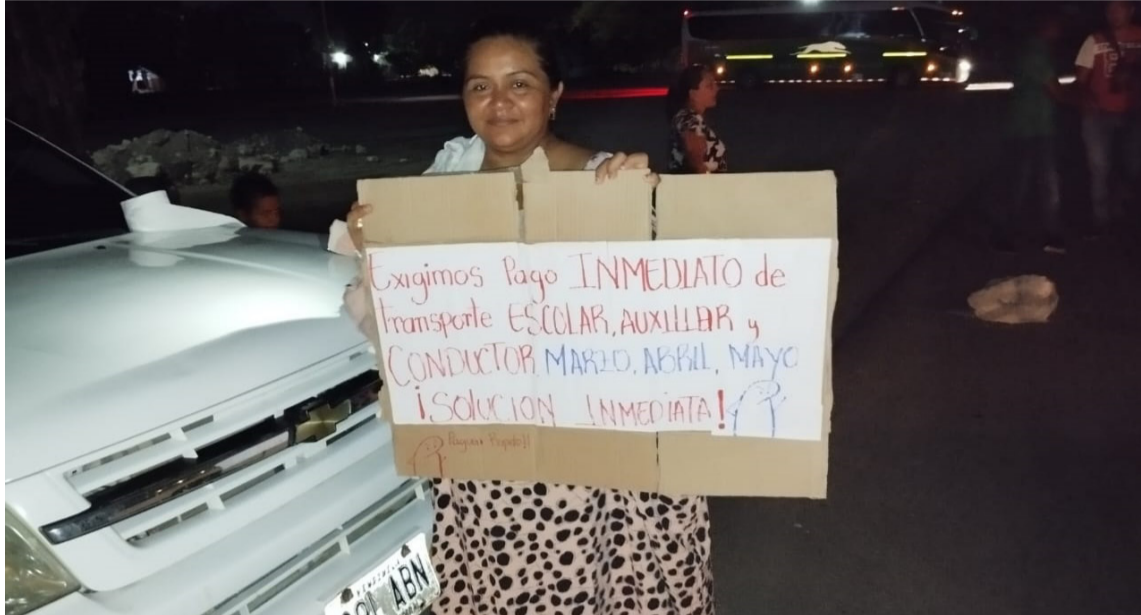 Exigimos Pago INMEDIATO de
transporte ESCOLAR, AUXILIAR y
CONDUCTOR MARZO, ABRIL, MAYO
¡SOLUCION INMEDIATA!
ABN